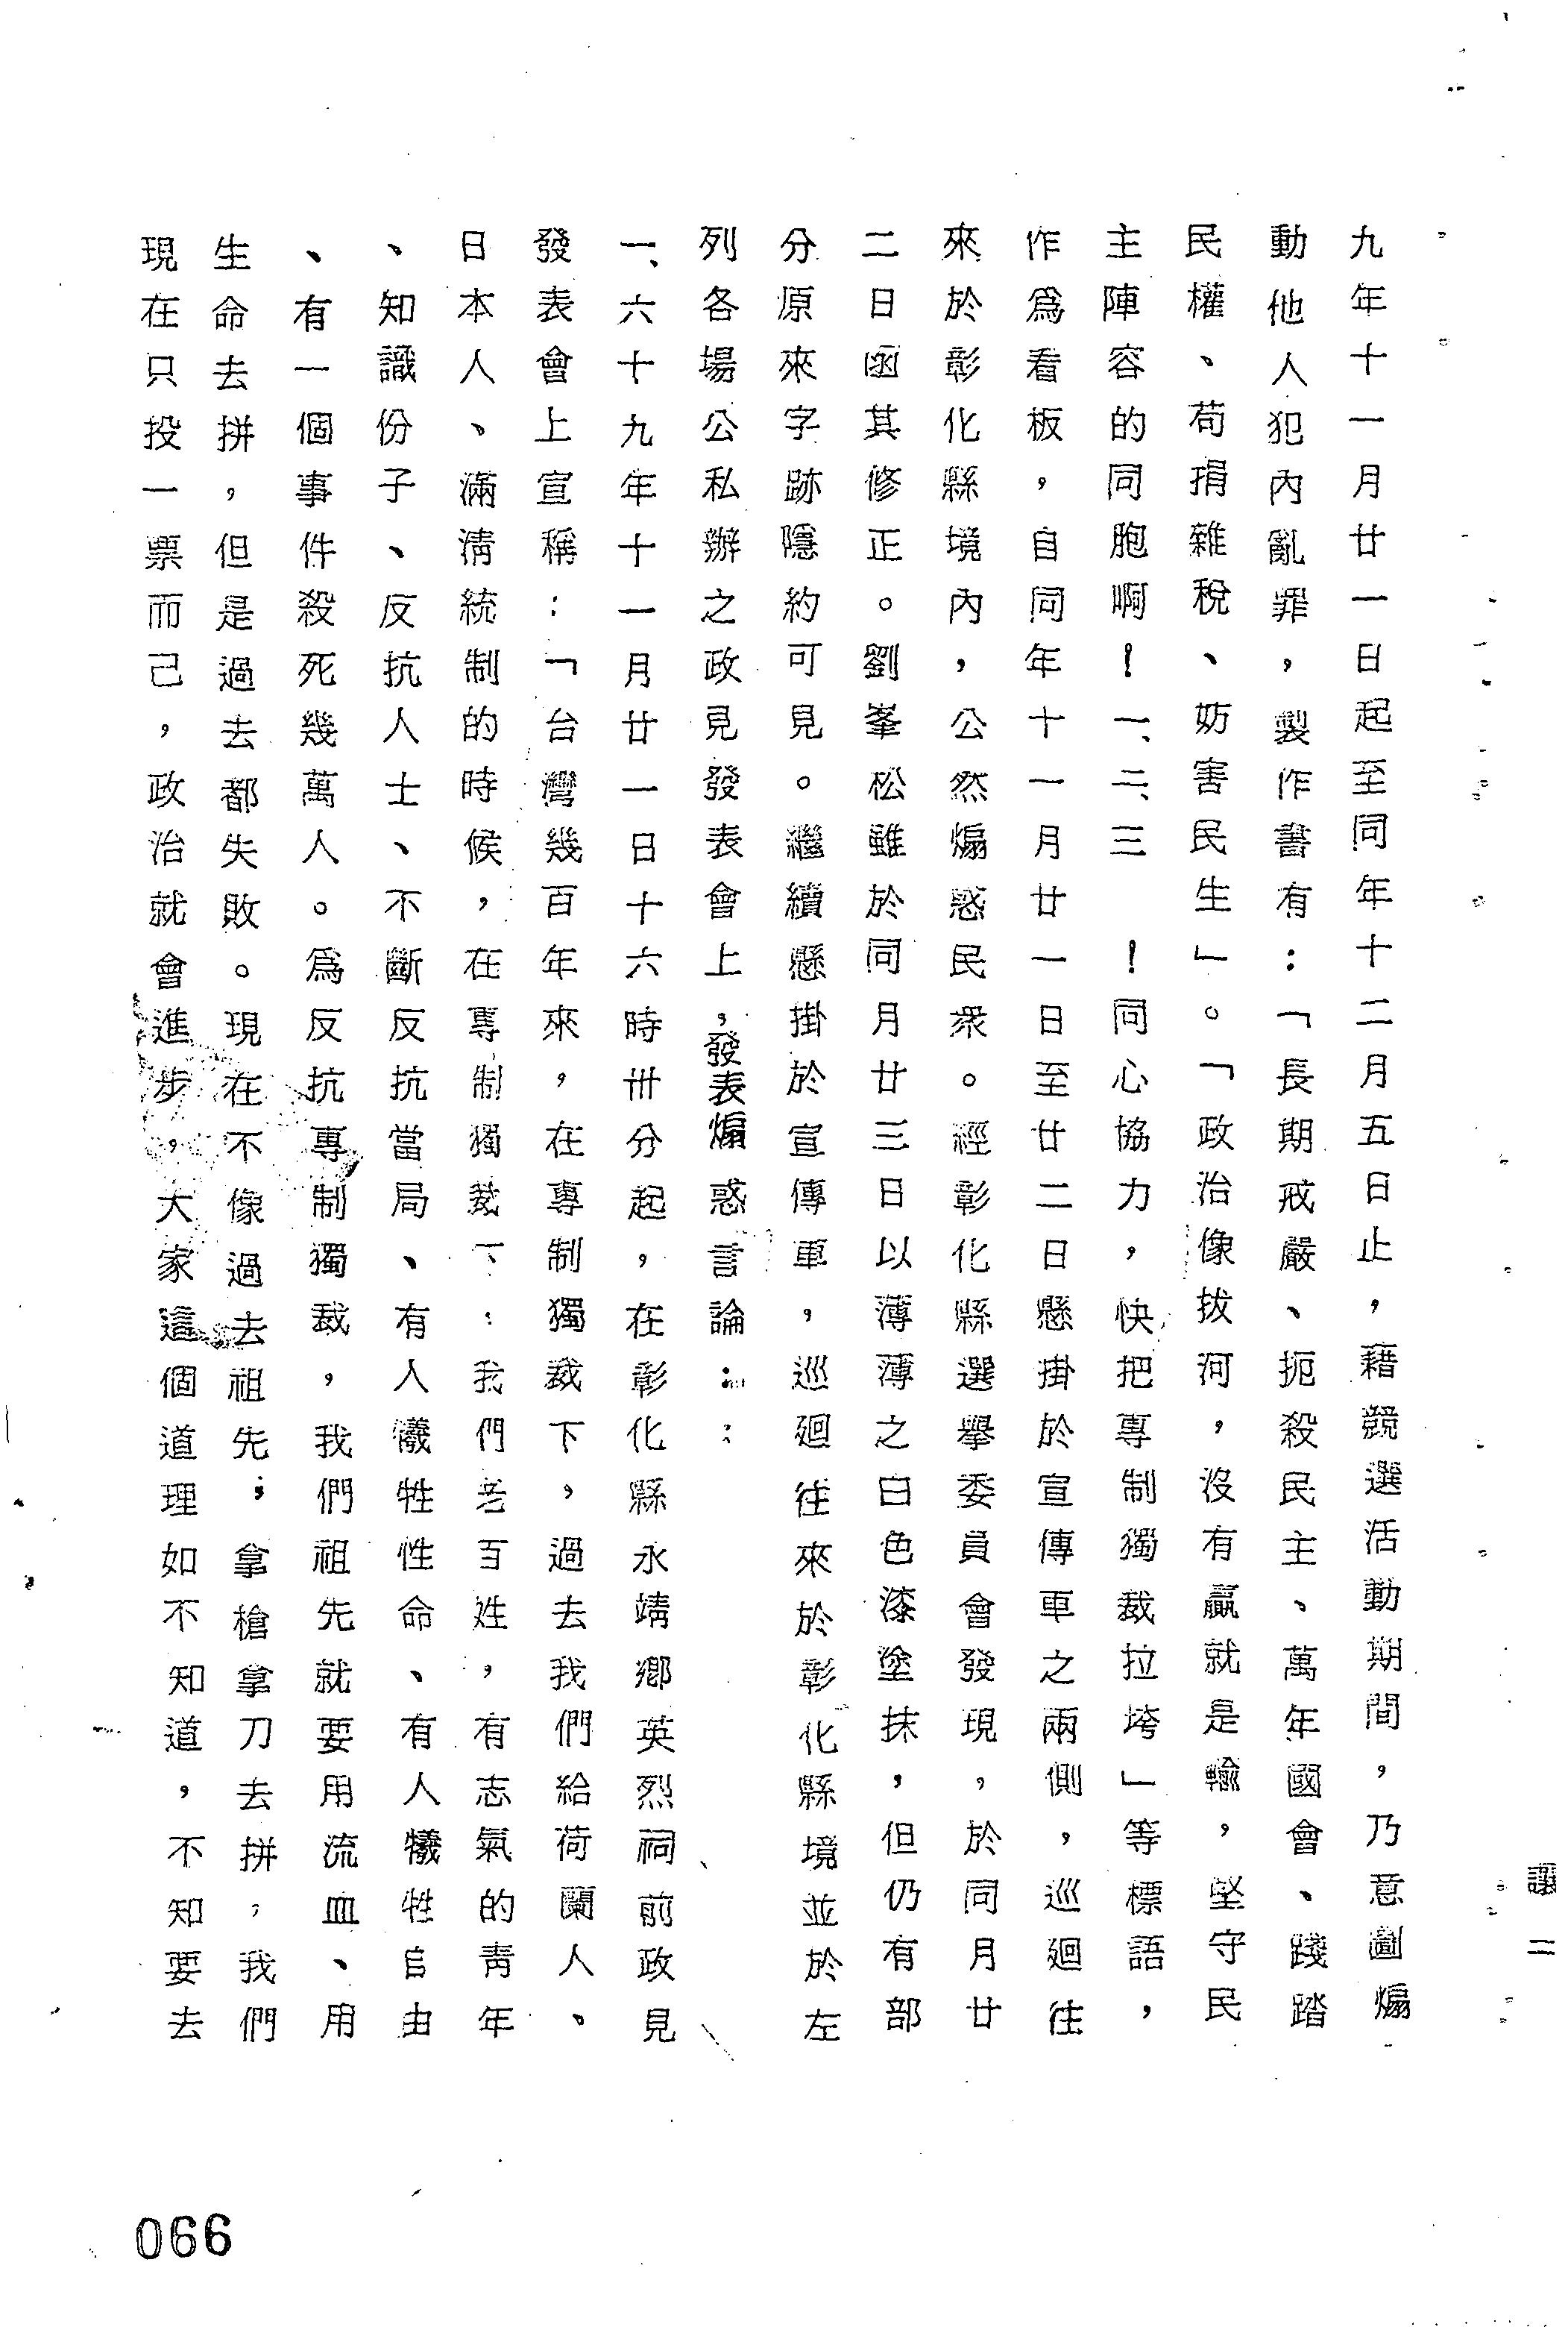 九年十一月廿一日起至同年十二月五日止，藉競選活動期間，乃意圖煽
動他人犯內亂罪，製作書有：「長期戒嚴、扼殺民主、萬年國會、踐踏
民權、苟捐雜稅、妨害民生」。「政治像拔河，沒有贏就是輸，堅守民
主陣容的同胞啊！一、二、三！同心協力，快把專制獨裁拉垮」等標語，
作為看板，自同年十一月廿一日至廿二日懸掛於宣傳車之兩側，巡迴往
來於彰化縣境內，公然煽惑民衆。經彰化縣選舉委員會發現，於同月廿
二日函其修正。劉峯松雖於同月廿三日以薄薄之白色漆塗抹，但仍有部
分原來字跡隱約可見。繼續懸掛於宣傳車，巡迴往來於彰化縣境並於左
列各場公私辦之政見發表會上，發表煽惑言論：
一、六十九年十一月廿一日十六時卅分起，在彰化縣永靖鄉英烈祠前政見
發表會上宣稱：「台灣幾百年來，在專制獨裁下，過去我們給荷蘭人、
日本人、滿清統制的時候，在專制獨裁下：我們老百姓，有志氣的青年
、知識份子、反抗人士、不斷反抗當局、有人犧牲性命、有人犧牲自由
、有一個事件殺死幾萬人。為反抗專制獨裁，我們祖先就要用流血、用
生命去拼，但是過去都失敗。現在不像過去祖先，拿槍拿刀去拼，我們
現在只投一票而己，政治就會進步，大家這個道理如不知道，不知要去
二
066